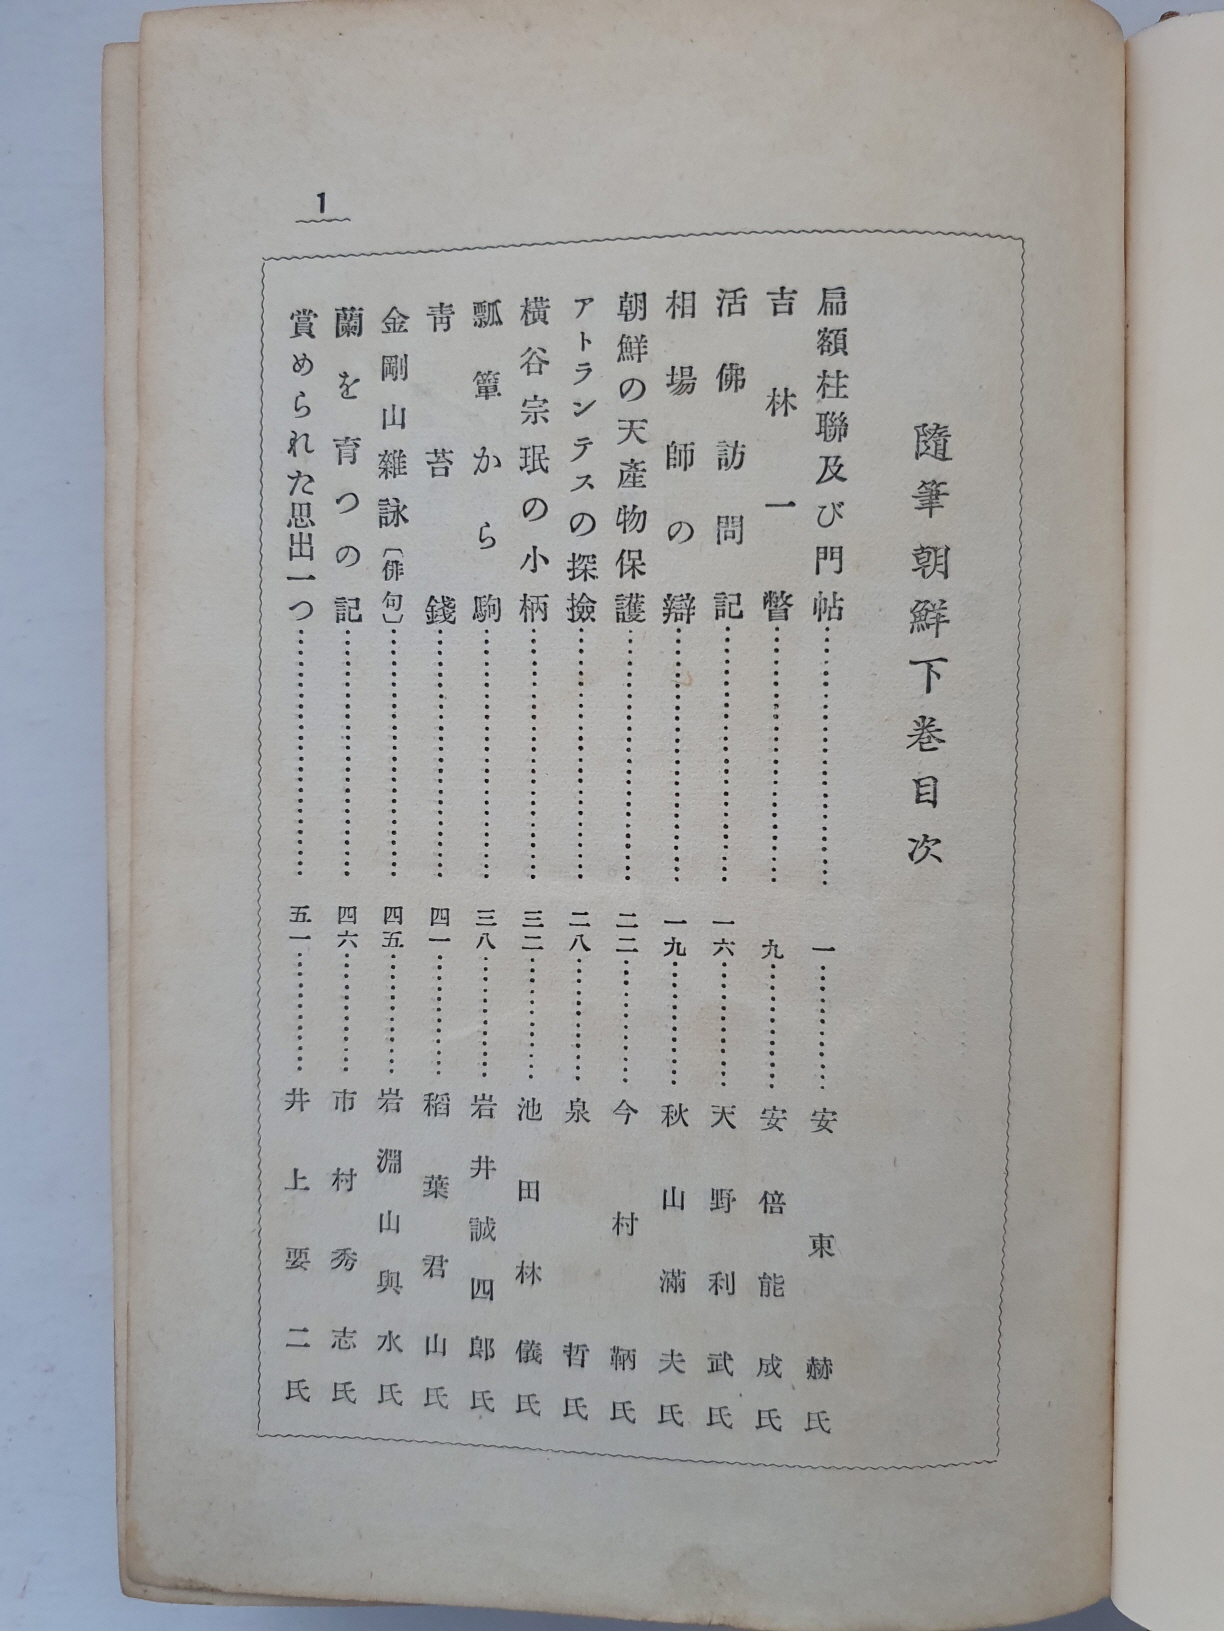 1
隨筆朝鮮下卷目次
扁額柱聯及び門帖……………………一…………安東赫氏
吉林一瞥……………………九…………安倍能成氏
活佛訪問記……………………一六…………天野利武氏
相場師の辯……………………一九…………秋山滿夫氏
朝鮮の天產物保護……………………二二…………今村鞆氏
アトランテスの探撿……………………二八…………泉哲氏
橫谷宗珉の小柄……………………三二…………池田林儀氏
瓢簞から駒……………………三八…………岩井誠四郎氏
靑苔錢……………………四一…………稻葉君山氏
金剛山雜詠〔俳句〕……………………四五…………岩淵山與水氏
蘭を育つの記……………………四六…………市村秀志氏
賞められた思出一つ……………………五一…………井上要二氏